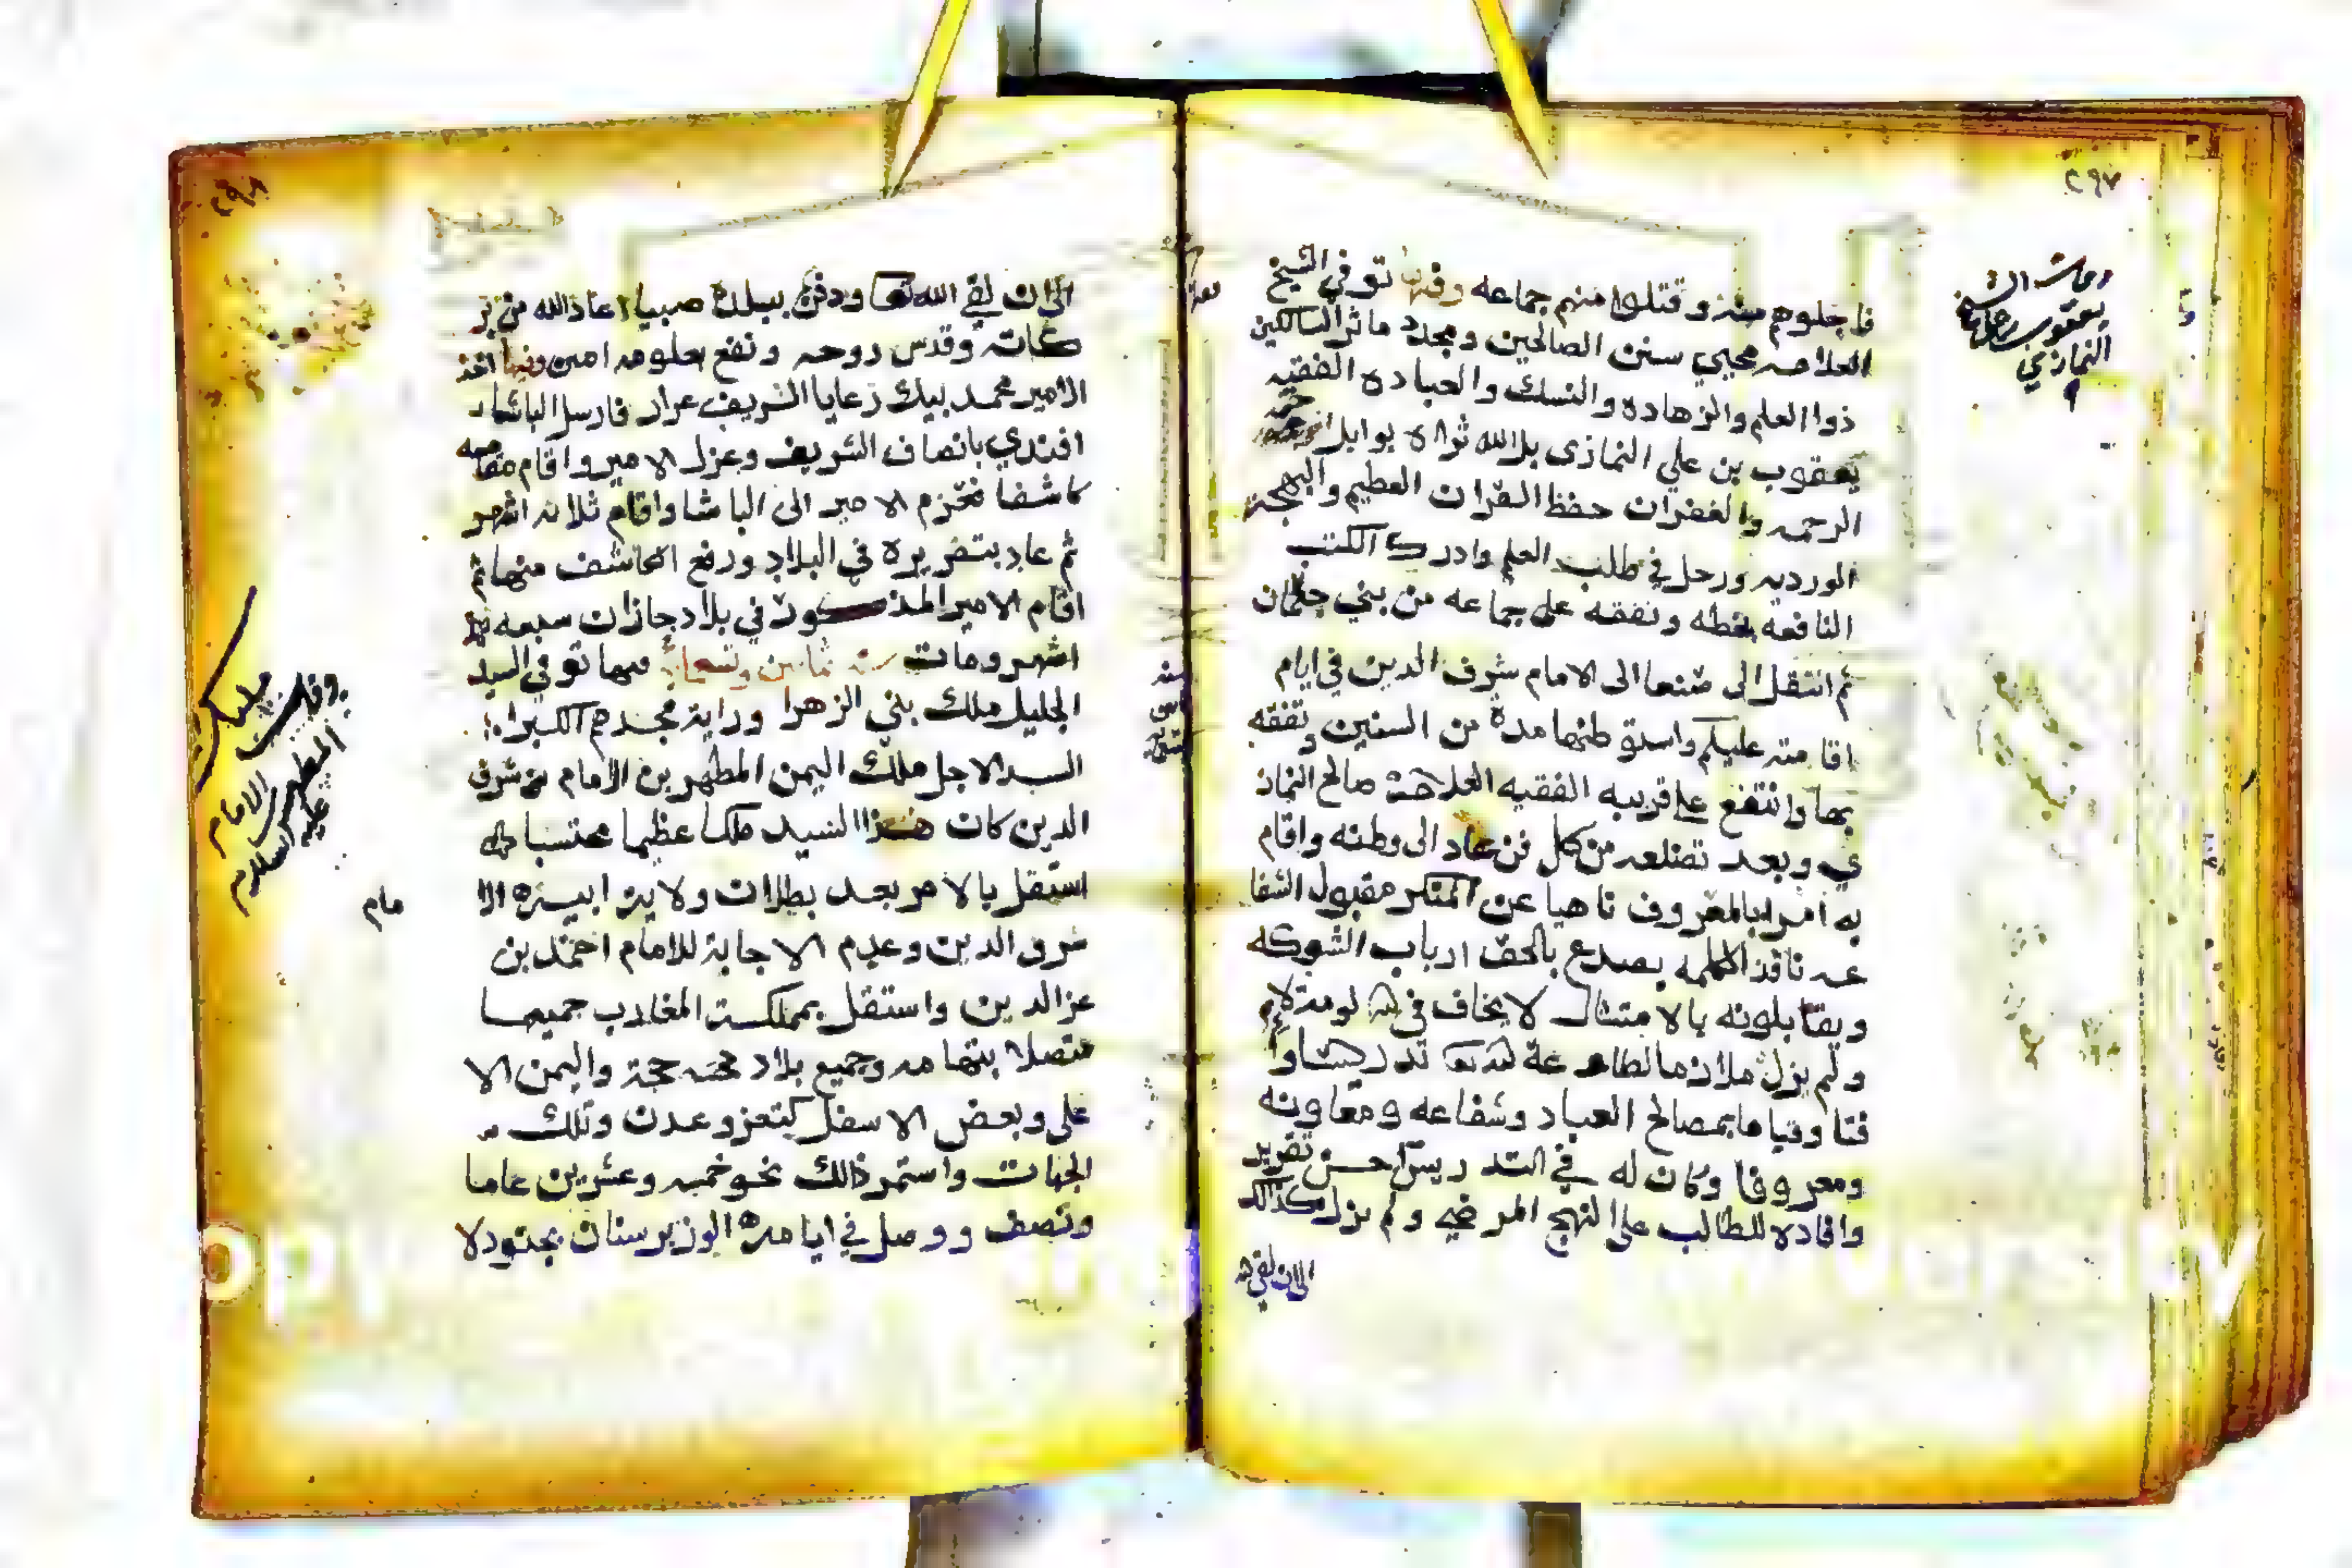 ٢٩٧
فاجلوهم منه وقتلوا منهم جماعه وفيها توفي الشيخ
العلامه محيي سنن الصالحين ومجدد ماثر السالكين
ذوا العلم والزهاده والنسك والعباده الفقيه
يعقوب بن علي النمازى بلالله ثراه بوابل
الرحمه والغفران حفظ القران العظيم والبهجة
الورديه ورحل في طلب العلم وادرك الكتب
النافعه بخطه وتفقه على جماعه من بني جعمان
ثم انتقل الى صنعا الى الامام شرف الدين في ايام
اقامته عليكم واستوطنها مدة من السنين وتفقه
بها وانتفع على قريبه الفقيه العلامة صالح النماز
ي وبعد تضلعه من كل فن عاد الى وطنه واقام
به امرا بالمعروف ناهيا عن المنكر مقبول الشفا
عه نافذ الكلمه يصدع بالحق ارباب الشوكه
ويقابلونه بالامتثال لا يخاف في الله لومة لايم
ولم يزل ملازما لطاعة لله تعا تدريسا وا
فتا وقياما بمصالح العباد وشفاعه ومعاونه
ومعروفا وكان له في التدريس حسن تقرير
وافاده للطالب على النهج المرضي ولم يزل كذالك
الى ان لقي الله
وفات الشيخ
يعقوب
النمازي
٢٩٨
الى ان لقي الله تعا ودفن ببلدة صبيا اعاذ الله من بر
كاته وقدس روحه ونفع بعلومه امين وفيها اخذ
الامير محمد بيك رعايا الشريف عرار فارسل الباشا
افندي بانصاف الشريف وعزل الامير واقام مقامه
كاشفا فعزم الامير الى الباشا واقام ثلاثه اشهر
ثم عاد بتقريره في البلاد ورفع الكاشف منها ثم
اقام الامير المذكور في بلاد جازان سبعه
اشهر ومات سنه ثمانين وتسعمائة فيها توفي السيد
الجليل ملك بني الزهرا وراية مجدهم الكبرا
السيد الاجل ملك اليمن المطهر بن الامام شرف
الدين كان هذا السيد ملكا عظيما محتسبا
استقل بالامر بعد بطلان ولاية ابيه الا
مام
شرف الدين وعدم الاجابة للامام احمد بن
عز الدين واستقل بمملكة المغارب جميعا
متصلا بتهامه وجميع بلاد حجة واليمن الا
على وبعض الاسفل كتعز وعدن وتلك
الجهات واستمر ذالك نحو خمسه وعشرين عاما
ونصف ووصل في ايامه الوزير سنان بجنود لا
وفات
المطهر
الامام
عليه السلام